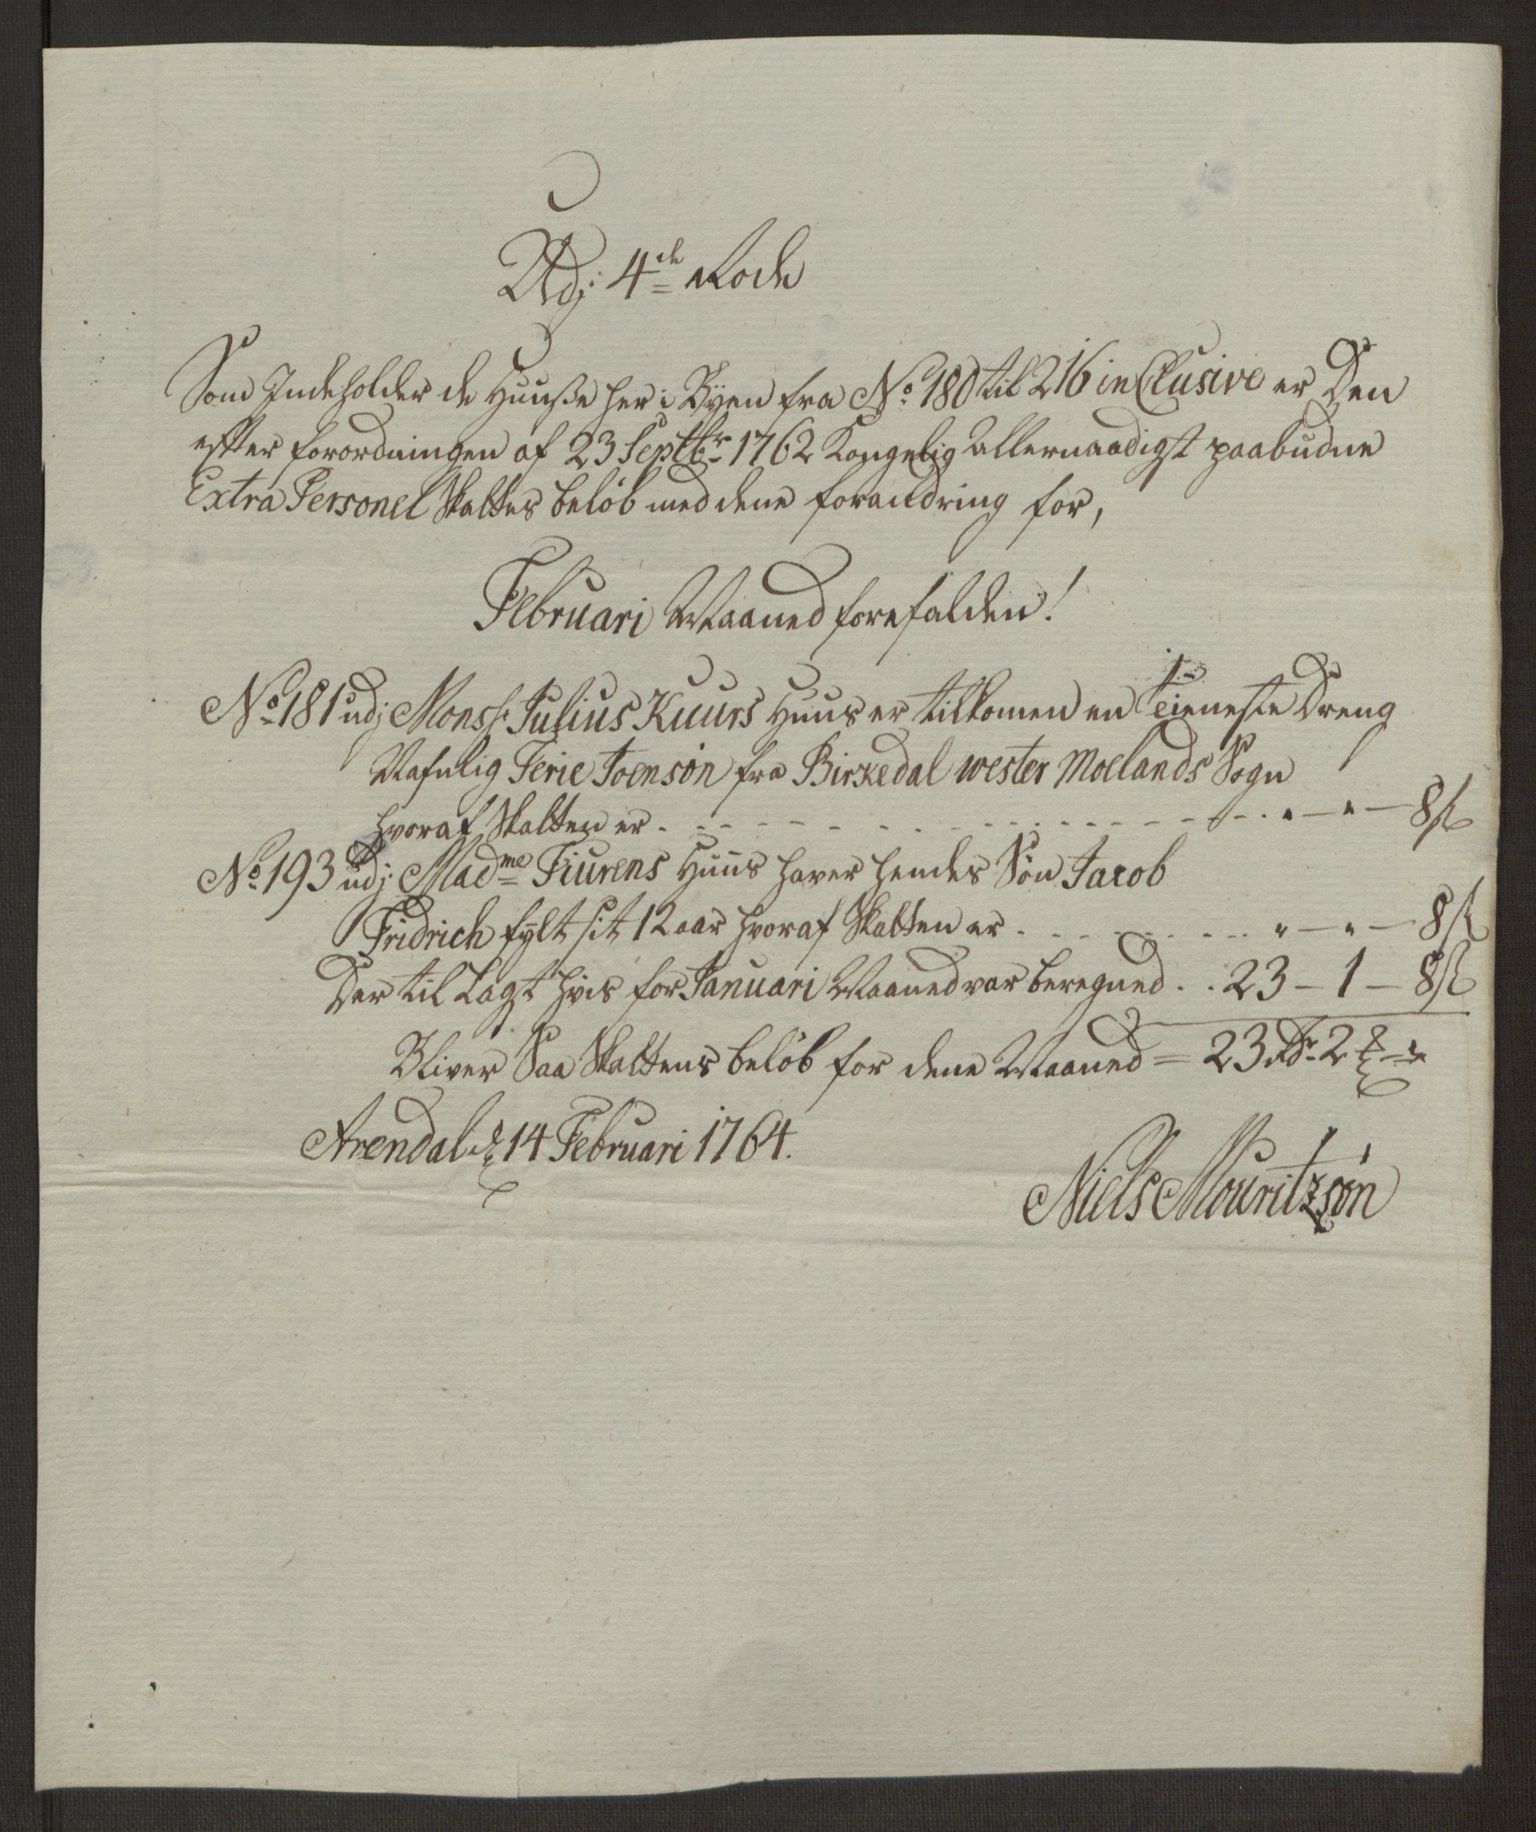 Udj 4de Rode
Som Indeholder de Huuße her i Byen fra No 180 til 216 inClusive er Den
efter forordningen af 23 Septbr 1762 Kongelig Allernaadigst paabudne
Extra Personel Skattes beløb med dene forandring for,
Februari Maaned forefalden!
No 181 udj Monsr Julius Kuurs Huus er tilkomen en Tieneste Dreng
Nafnlig Terie Joensøn fra Birkedal wester Moelands Sogn
hvoraf Skatten er - - - " — " — 8 ß
No 193 udj Madme Fiurens Huus haver hendes Søn Jacob
Fridrich fylt sit 12 aar hvoraf Skatten er - - - " — " — 8 ß
Der til Lagt hvis for Januari Maaned var beregned . . 23 — 1 — 8 ß
Bliver Saa Skattens beløb for dene Maaned = 23 Rdr 2 ₰ — "
Arendal d 14 Februari 1764.
Niels Mouritzsøn